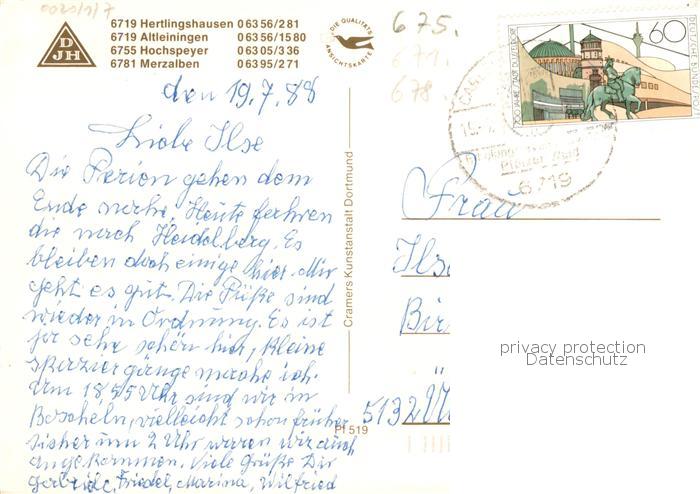 0020/1/7
6719 Hertlingshausen 06356/281
6719 Altleiningen 06356/1580
6755 Hochspeyer 06305/336
6781 Merzalben 06395/271
DJH
DIE QUALITÄTS ANSICHTSKARTE
675.
671.
678.
60
DEUTSCHE BUNDESPOST
700 JAHRE STADT DÜSSELDORF
Pfälzer Wald
6719
den 19.7.88
Liebe Ilse
Die Ferien gehen dem
Ende nahe, Heute fahren
die nach Heidelberg. Es
bleiben doch einige hier. Mir
geht es gut. Die Füße sind
wieder in Ordnung. Es ist
ja sehr schön hier, kleine
Spaziergänge mache ich.
Um 18.55 Uhr sind wir in
Boscheln, vielleicht schon früher
um 2 Uhr waren wir auch
angekommen. Viele Grüße Dir
Friedel, Marina, Wilfried
Cramers Kunstanstalt Dortmund
Pf 519
Frau
Ils
Bir
5132 Ü
privacy protection
Datenschutz